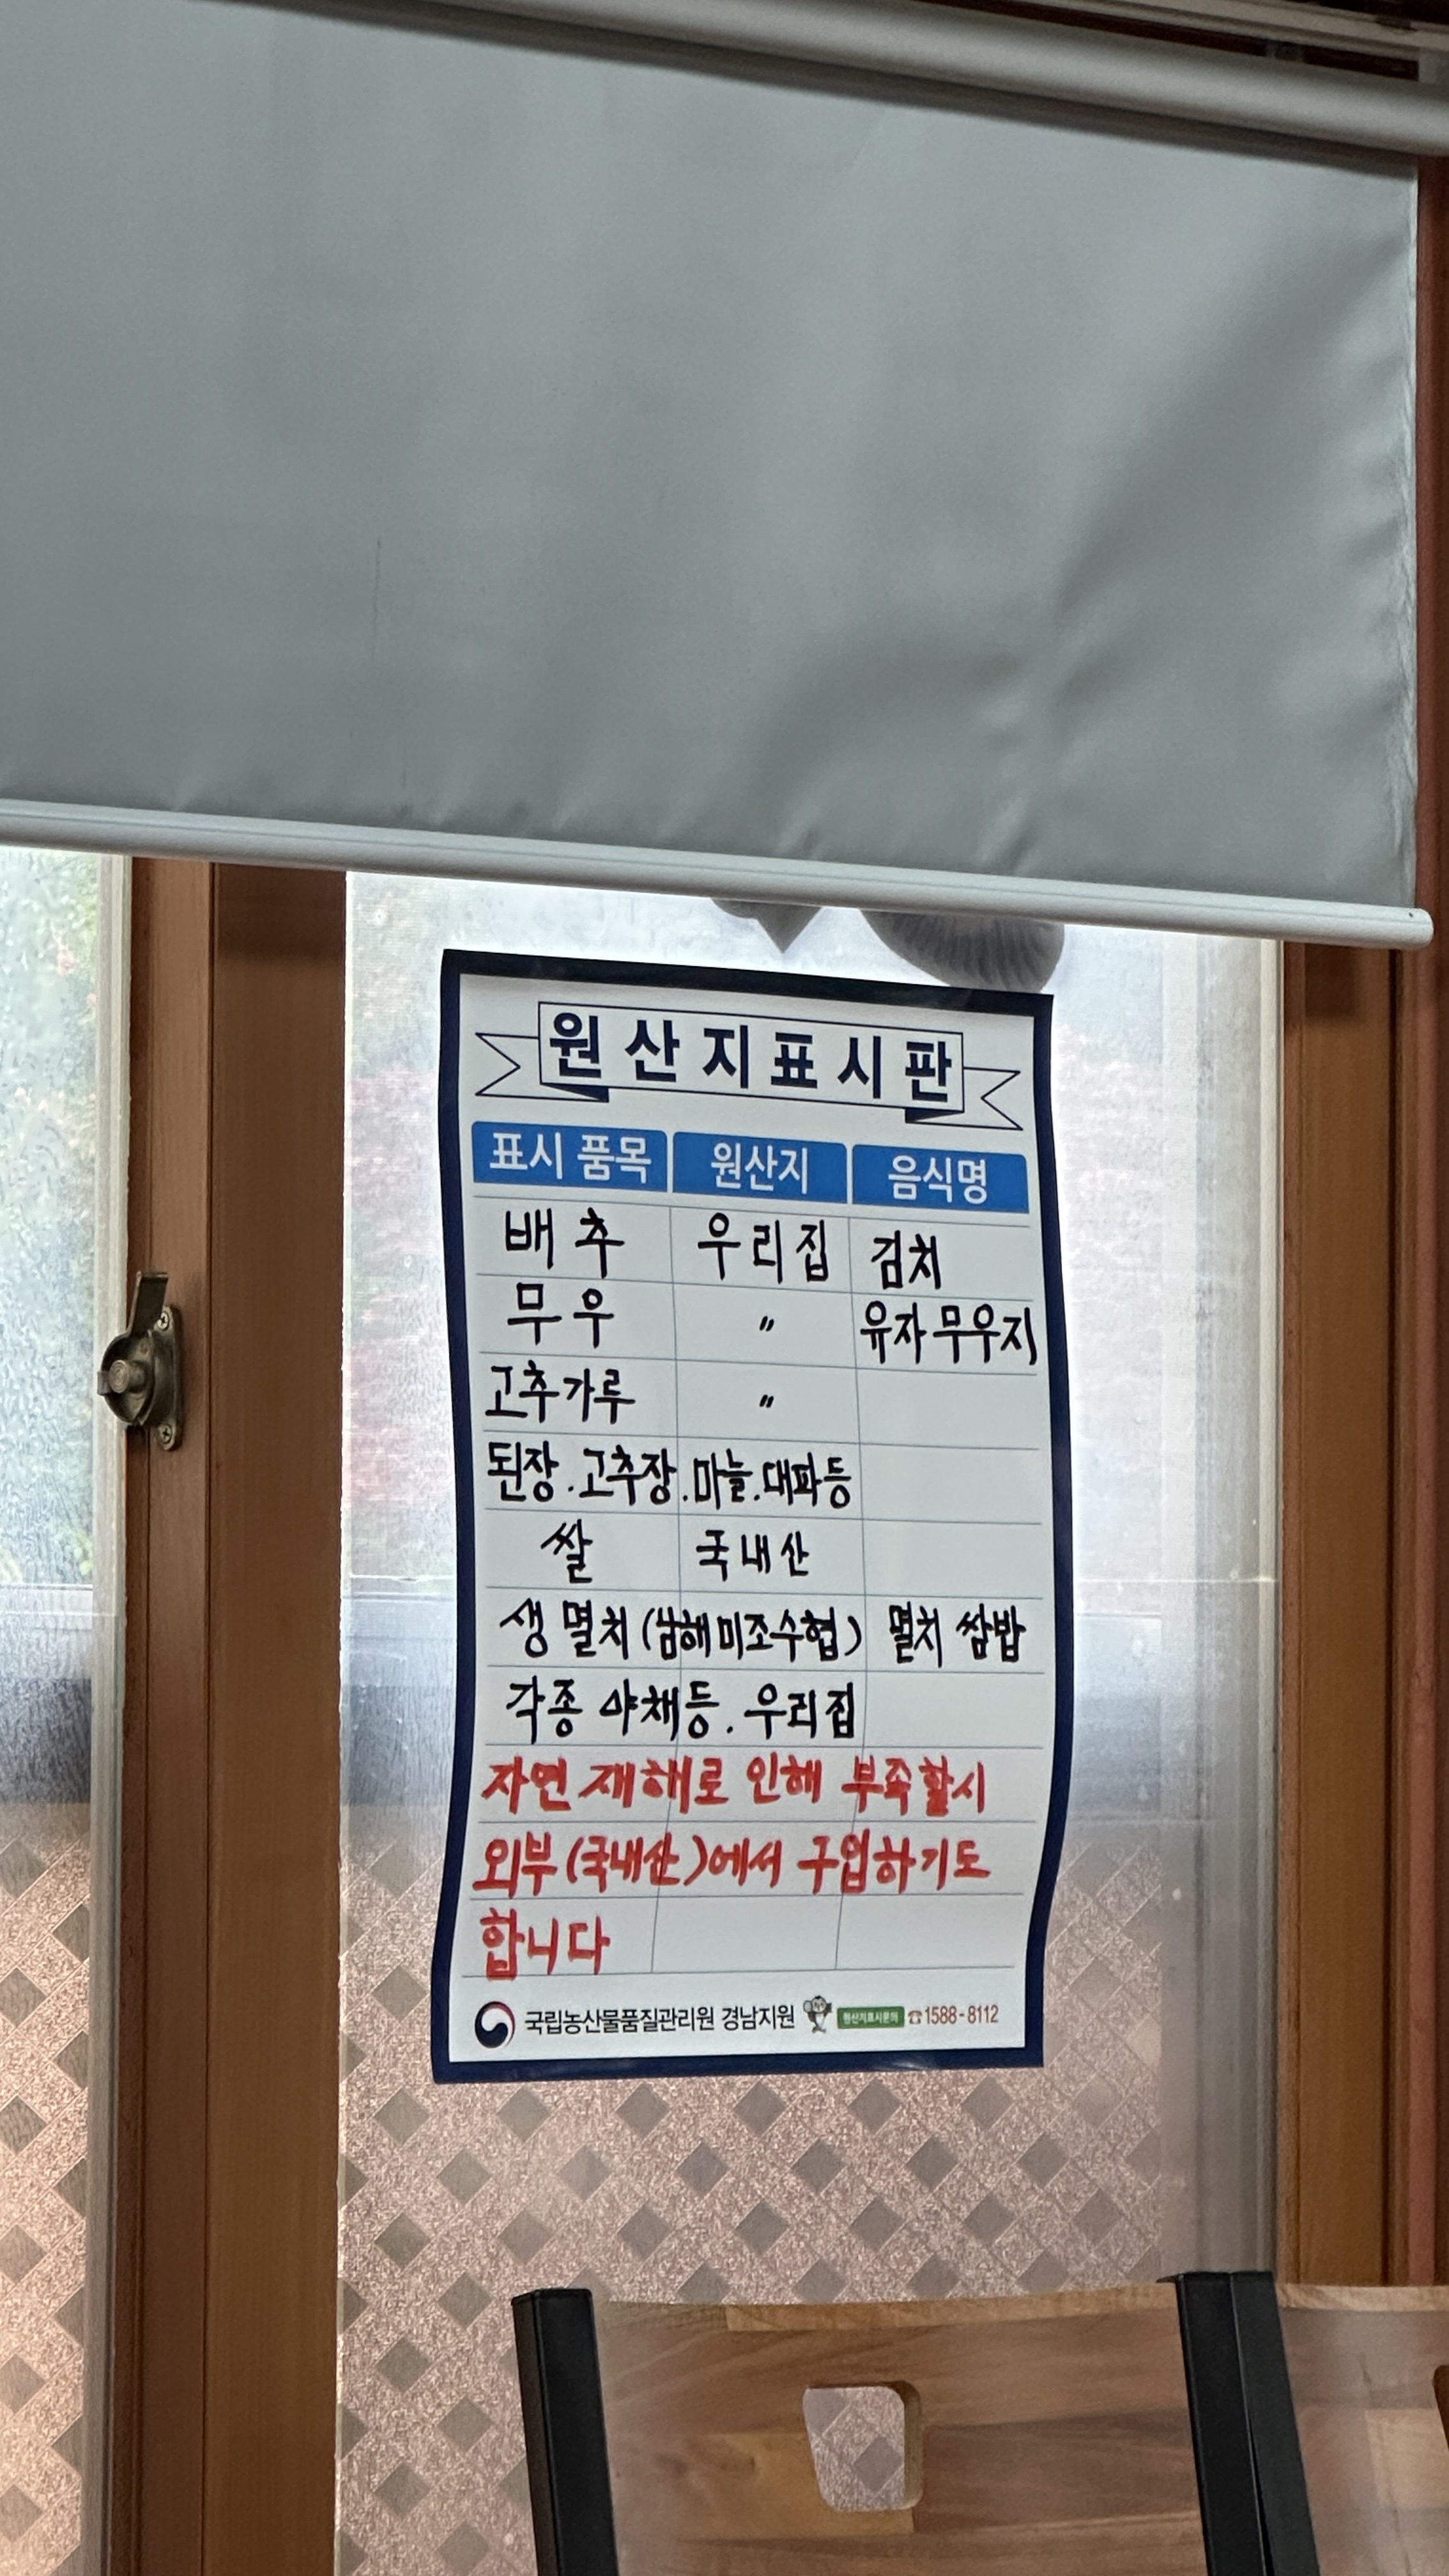 원산지표시판
표시 품목 원산지 음식명
배추 우리집 김치
무우 〃 유자무우지
고추가루 〃
된장.고추장.마늘.대파등
쌀 국내산
생멸치(남해미조수협) 멸치 쌈밥
각종 야채등. 우리집
자연재해로 인해 부족할시
외부(국내산)에서 구입하기도
합니다
국립농산물품질관리원 경남지원 원산지표시문의 ☎1588-8112